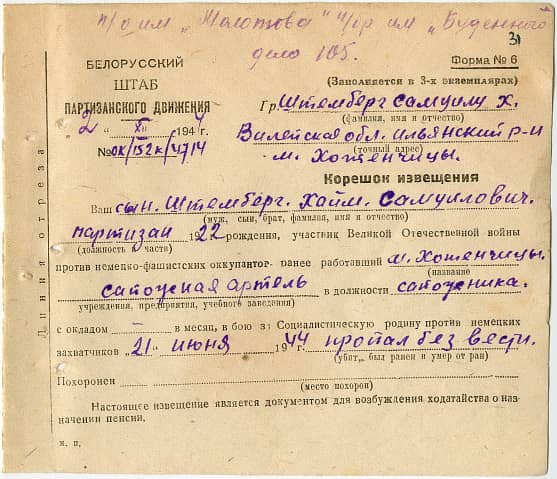 п/о им „Молотова" п/ор им „Буденного"
дело 105.
31
БЕЛОРУССКИЙ
ШТАБ
ПАРТИЗАНСКОГО ДВИЖЕНИЯ
„2" XII 1944 г.
№ОК/152к/4714
Форма № 6
(Заполняется в 3-х экземплярах)
Гр. Штемберг Самуилу Х.
(фамилия, имя и отчество)
Вилейская обл. Ильянский р-н
(точный адрес)
м. Хотенчицы.
Корешок извещения
Линия отреза
Ваш сын. Штемберг. Хаим. Самуилович.
(муж, сын, брат, фамилия, имя и отчество)
партизан 1922 рождения, участник Великой Отечественной войны
(должность в части)
против немецко-фашистских оккупантов ранее работавший м. Хотенчицы.
(название
сапожная артель в должности сапожника.
учреждения, предприятия, учебного заведения)
с окладом — в месяц, в бою за Социалистическую родину против немецких
захватчиков „21" июня 1944 пропал без вести.
(убит, был ранен и умер от ран)
Похоронен
(место похорон)
Настоящее извещение является документом для возбуждения ходатайства о наз-
начении пенсии.
м. п.